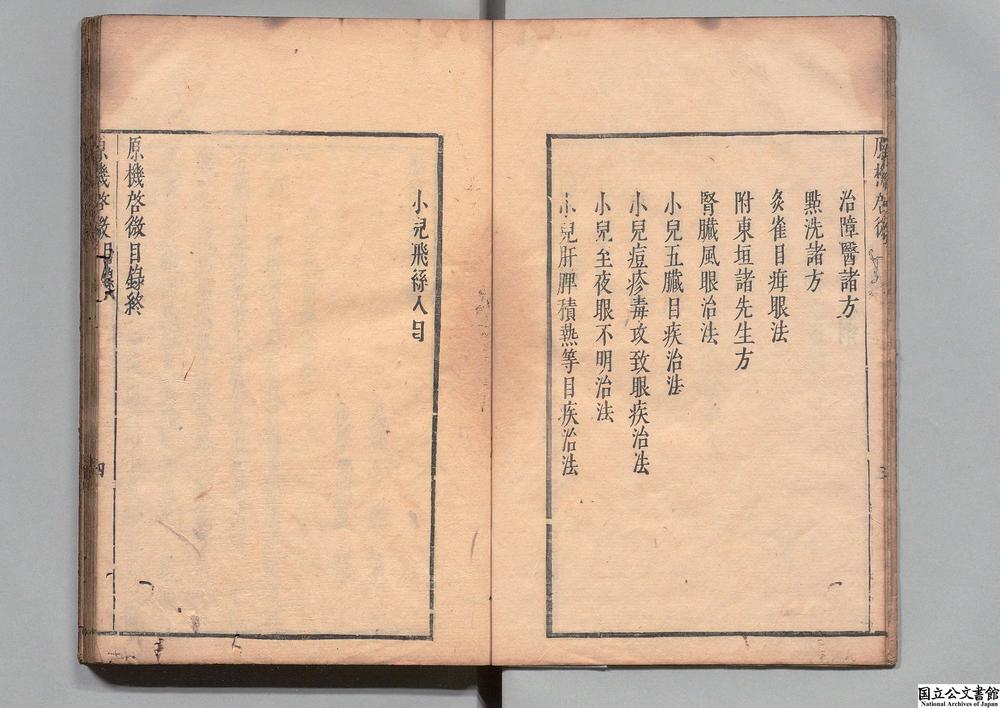 治障醫諸方
點洗諸方
灸雀目疳眼法
附東垣諸先生方
腎臟風眼治法
小兒五臟目疾治法
小兒痘疹毒攻致眼疾治法
小兒至夜眼不明治法
小兒肝脾積熱等目疾治法
三
小兒飛絲入目
原機啓微目錄終
原機啓微目錄
四
国立公文書館
National Archives of Japan